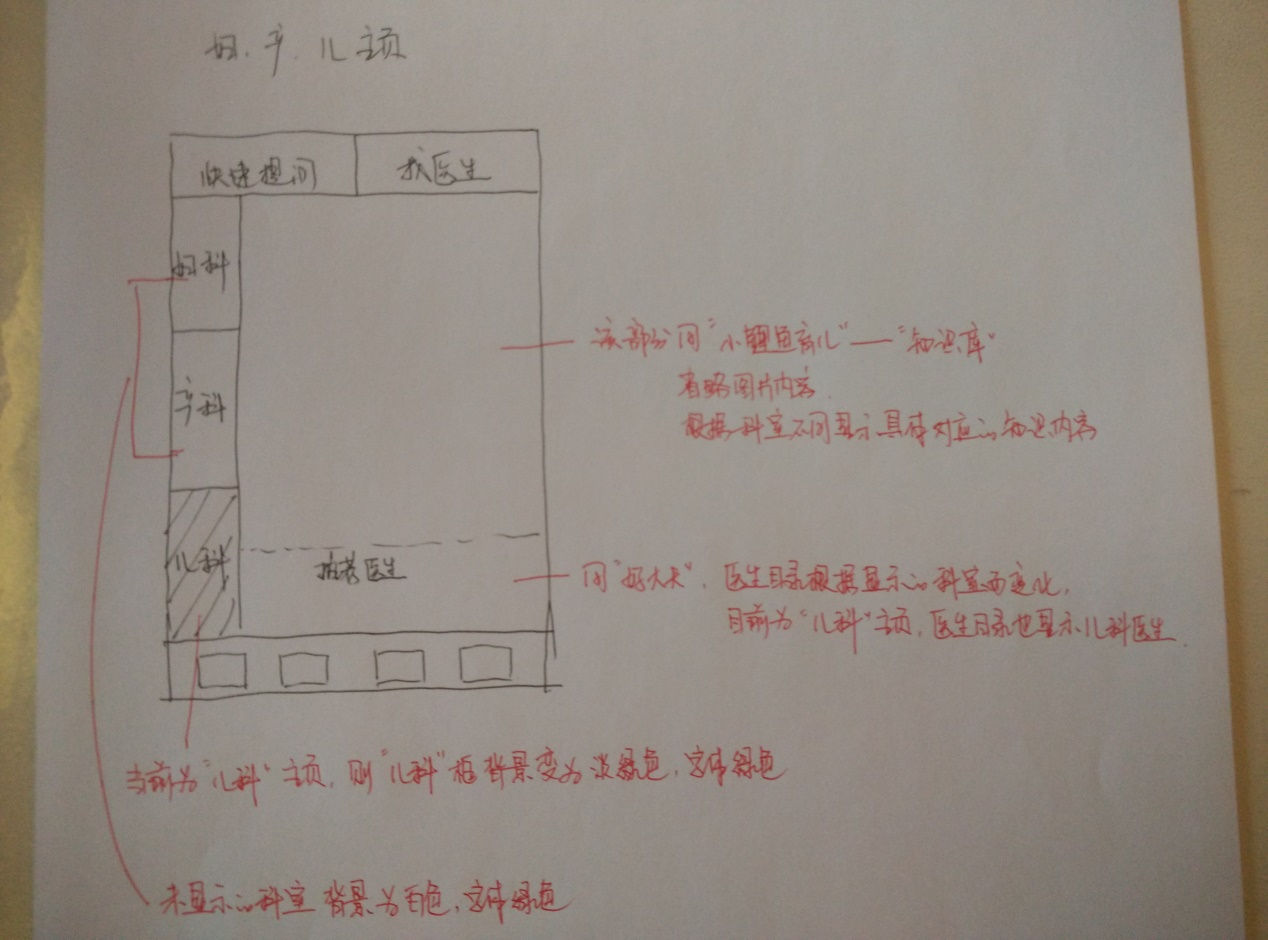 妇、产、儿主页
快速提问
找医生
妇科
产科
儿科
推荐医生
该部分同“小鲤鱼育儿”——“知识库”
省略图片内容
根据科室不同显示具体对应的知识内容
同“好大夫”，医生目录根据显示的科室而变化，
目前为“儿科”主页，医生目录也显示儿科医生
当前为“儿科”主页，则“儿科”框背景变为淡绿色，字体绿色
未显示的科室背景为白色，字体绿色